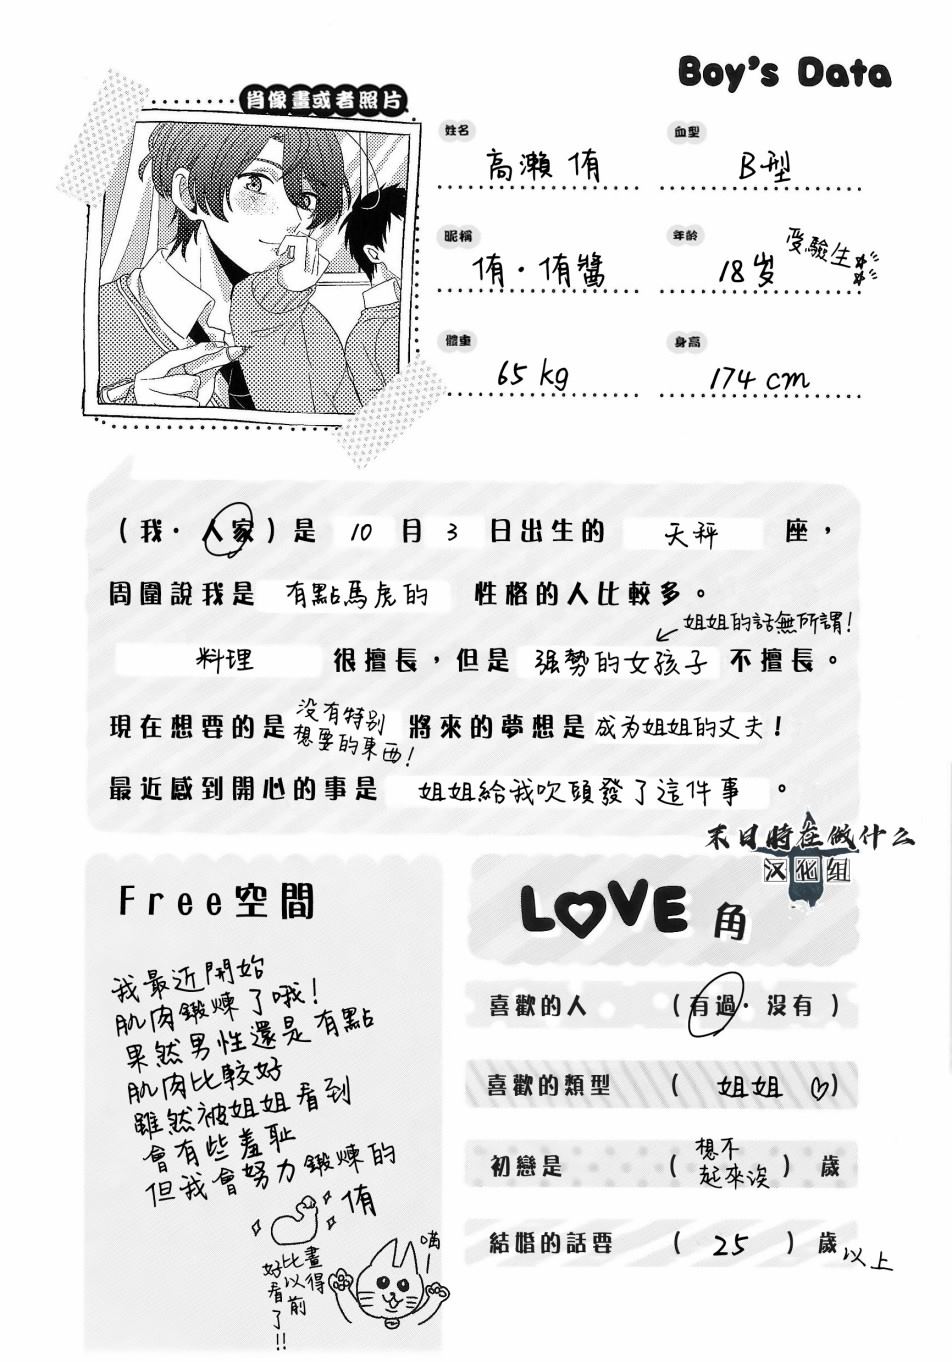 Boy's Data
肖像畫或者照片
姓名
高瀨 侑
血型
B型
昵稱
侑・侑醬
年齡
18岁
受驗生
體重
65 kg
身高
174 cm
(我・人家)是 10 月 3 日出生的 天秤 座，
周圍說我是 有點馬虎的 性格的人比較多。
姐姐的話無所謂!
料理 很擅長，但是 强勢的女孩子 不擅長。
現在想要的是 没有特别想要的東西! 將來的夢想是 成为姐姐的丈夫!
最近感到開心的事是 姐姐給我吹頭發了這件事 。
末日時在做什么
汉化组
Free空間
我最近開始
肌肉鍛煉了哦!
果然男性還是有點
肌肉比較好
雖然被姐姐看到
會有些羞恥
但我會努力鍛煉的
侑
喵一
畫得
比以前
好看了!!
LOVE角
喜歡的人 (有過・没有)
喜歡的類型 ( 姐姐 ♡)
初戀是 (想不起來诶) 歲
結婚的話要 ( 25 ) 歲 以上